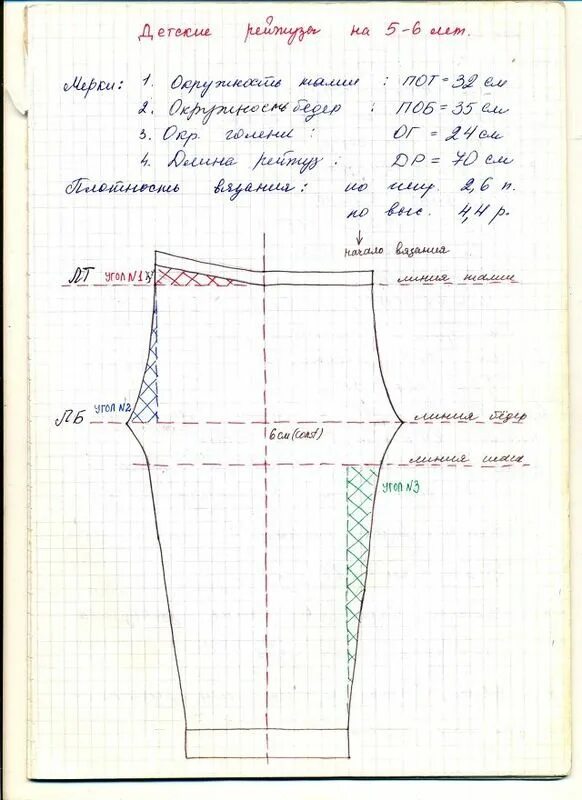 Детские рейтузы на 5-6 лет.
Мерки: 1. Окружность талии : ПОТ = 32 см
2. Окружность бёдер : ПОБ = 35 см
3. Окр. голени : ОГ = 24 см
4. Длина рейтуз : ДР = 70 см
Плотность вязания : по шир. 2,6 п.
по выс. 4,4 р.
начало вязания
ЛТ угол №1 3 линия талии
ЛБ угол №2 линия бёдер
6 см (const)
линия шага
угол №3